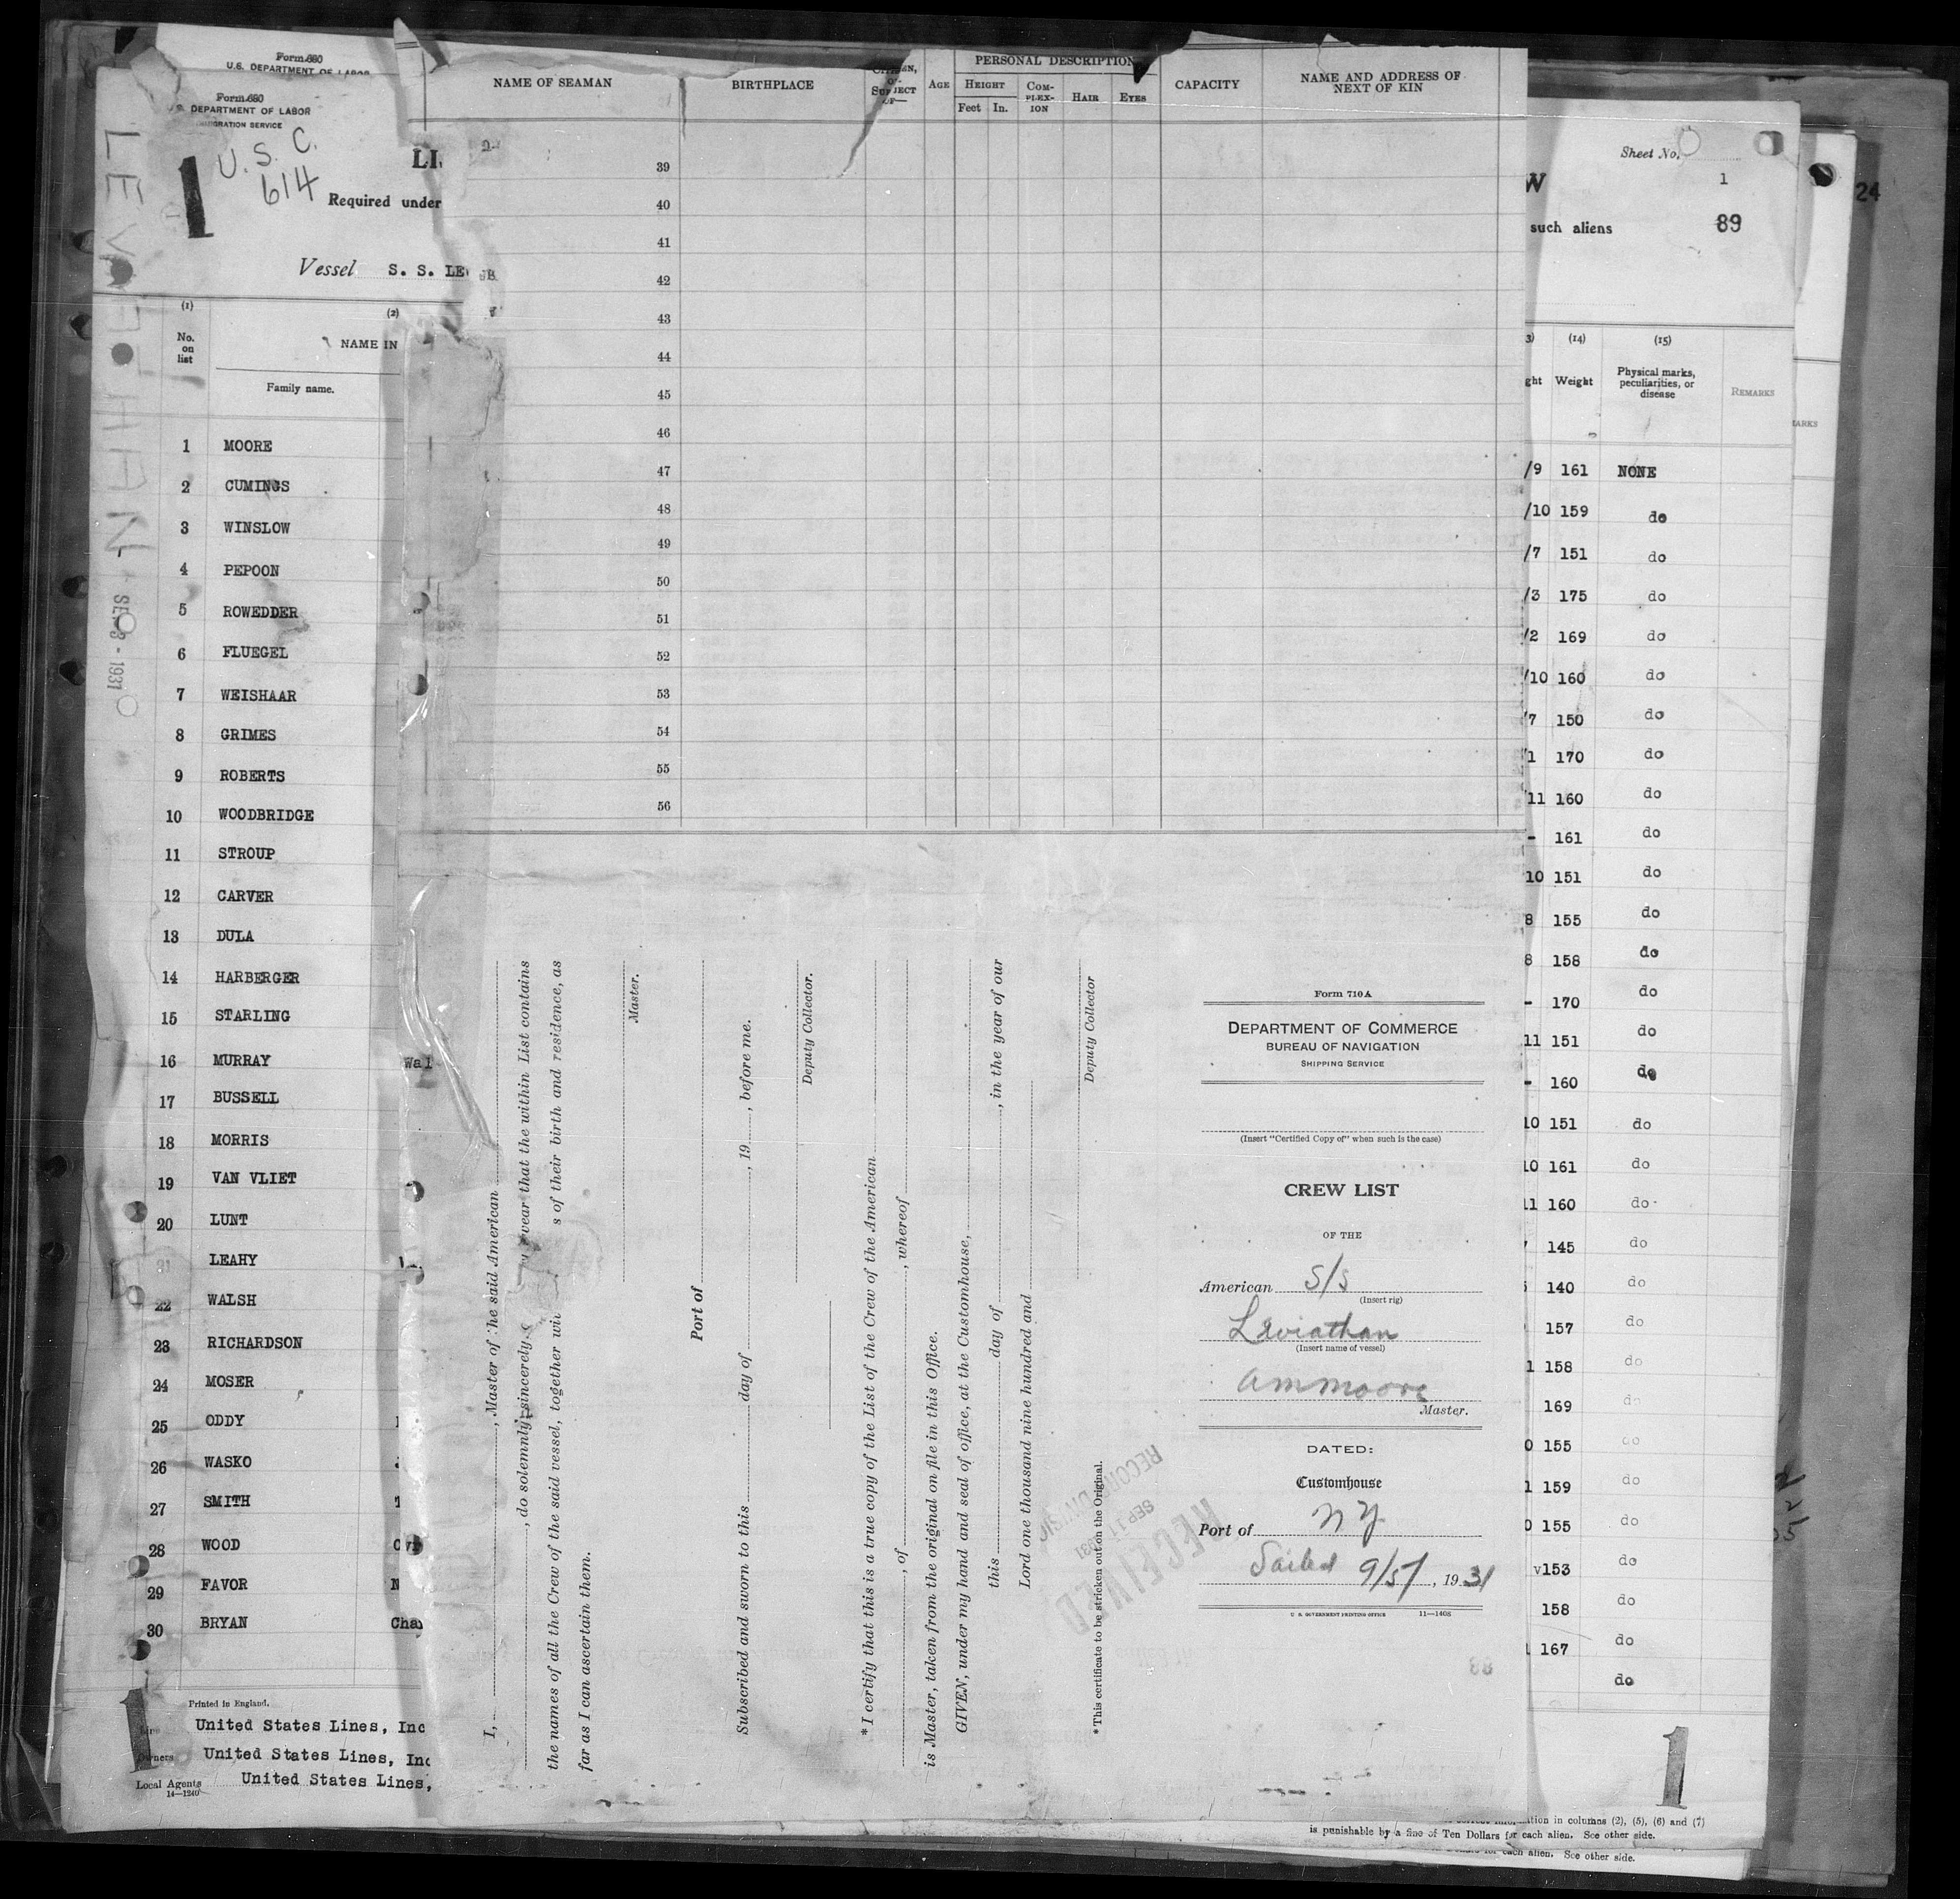 Form 680
U.S. DEPARTMENT OF LABOR
Form 680
DEPARTMENT OF LABOR
IMMIGRATION SERVICE
LEVIATHAN
SEP 8 - 1931
1
U. S. C.
614
Required under
Vessel S. S. LE
(1)
(2)
No. on list
NAME IN
Family name.
1 MOORE
2 CUMINGS
3 WINSLOW
4 PEPOON
5 ROWEDDER
6 FLUEGEL
7 WEISHAAR
8 GRIMES
9 ROBERTS
10 WOODBRIDGE
11 STROUP
12 CARVER
13 DULA
14 HARBERGER
15 STARLING
16 MURRAY Wal
17 BUSSELL
18 MORRIS
19 VAN VLIET
20 LUNT
21 LEAHY
22 WALSH
23 RICHARDSON
24 MOSER
25 ODDY
26 WASKO
27 SMITH
28 WOOD
29 FAVOR N
30 BRYAN Cha
1
Printed in England.
United States Lines, Inc
Owners United States Lines, Inc
Local Agents United States Lines,
14—1240
NAME OF SEAMAN
BIRTHPLACE
CITIZEN, OR SUBJECT OF—
AGE
PERSONAL DESCRIPTION
HEIGHT
Feet In.
COM-PLEX-ION
HAIR
EYES
CAPACITY
NAME AND ADDRESS OF NEXT OF KIN
39
40
41
42
43
44
45
46
47
48
49
50
51
52
53
54
55
56
I, , Master of the said American
, do solemnly, sincerely, swear that the within List contains
the names of all the Crew of the said vessel, together wi s of their birth and residence, as
far as I can ascertain them.
Master.
Port of
Subscribed and sworn to this day of , 19 , before me.
Deputy Collector.
* I certify that this is a true copy of the List of the Crew of the American
, of , whereof
is Master, taken from the original on file in this Office.
GIVEN, under my hand and seal of office, at the Customhouse,
this day of , in the year of our
Lord one thousand nine hundred and
Deputy Collector
* This certificate to be stricken out on the Original.
RECEIVED
SEP 11 1931
RECORD DIVISION
Form 710 A
DEPARTMENT OF COMMERCE
BUREAU OF NAVIGATION
SHIPPING SERVICE
(Insert "Certified Copy of" when such is the case)
CREW LIST
OF THE
American S/S
(Insert rig)
Leviathan
(Insert name of vessel)
AMMoore
Master.
DATED:
Customhouse
Port of NY
Sailed 9/5/, 1931
U. S. GOVERNMENT PRINTING OFFICE 11—1408
Sheet No.
1
W
24
such aliens
89
(14)
(15)
ght
Weight
Physical marks, peculiarities, or disease
REMARKS
/9 161 NONE
/10 159 do
/7 151 do
/3 175 do
/2 169 do
/10 160 do
/7 150 do
/1 170 do
11 160 do
- 161 do
10 151 do
8 155 do
8 158 do
- 170 do
11 151 do
- 160 do
10 151 do
10 161 do
11 160 do
145 do
140 do
157 do
1 158 do
169 do
0 155 do
1 159 do
0 155 do
v153 do
158 do
167 do
do
1
in columns (2), (5), (6) and (7)
is punishable by a fine of Ten Dollars for each alien. See other side.
for each alien. See other side.